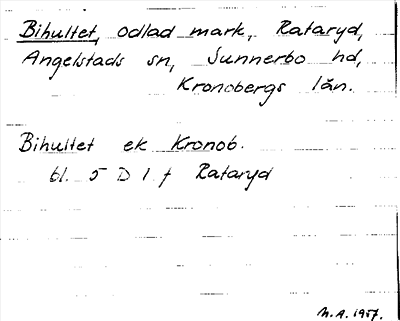 Bihultet, odlad mark, Rataryd,
Angelstads sn, Sunnerbo hd,
Kronobergs län.
Bihultet ek Kronob.
bl. 5 D 1 f Rataryd
N.A. 1957.